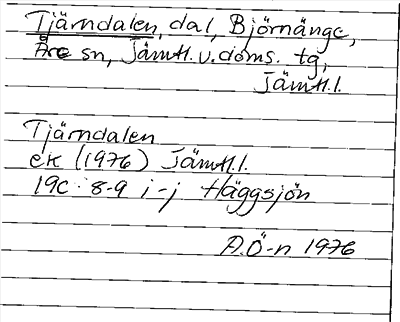 Tjärndalen, dal, Björnänge,
Åre sn, Jämtl. v. doms. tg,
Jämtl. l.
Tjärndalen
ek (1976) Jämtl. l.
19C : 8-9 i-j Häggsjön
A.Ö-n 1976